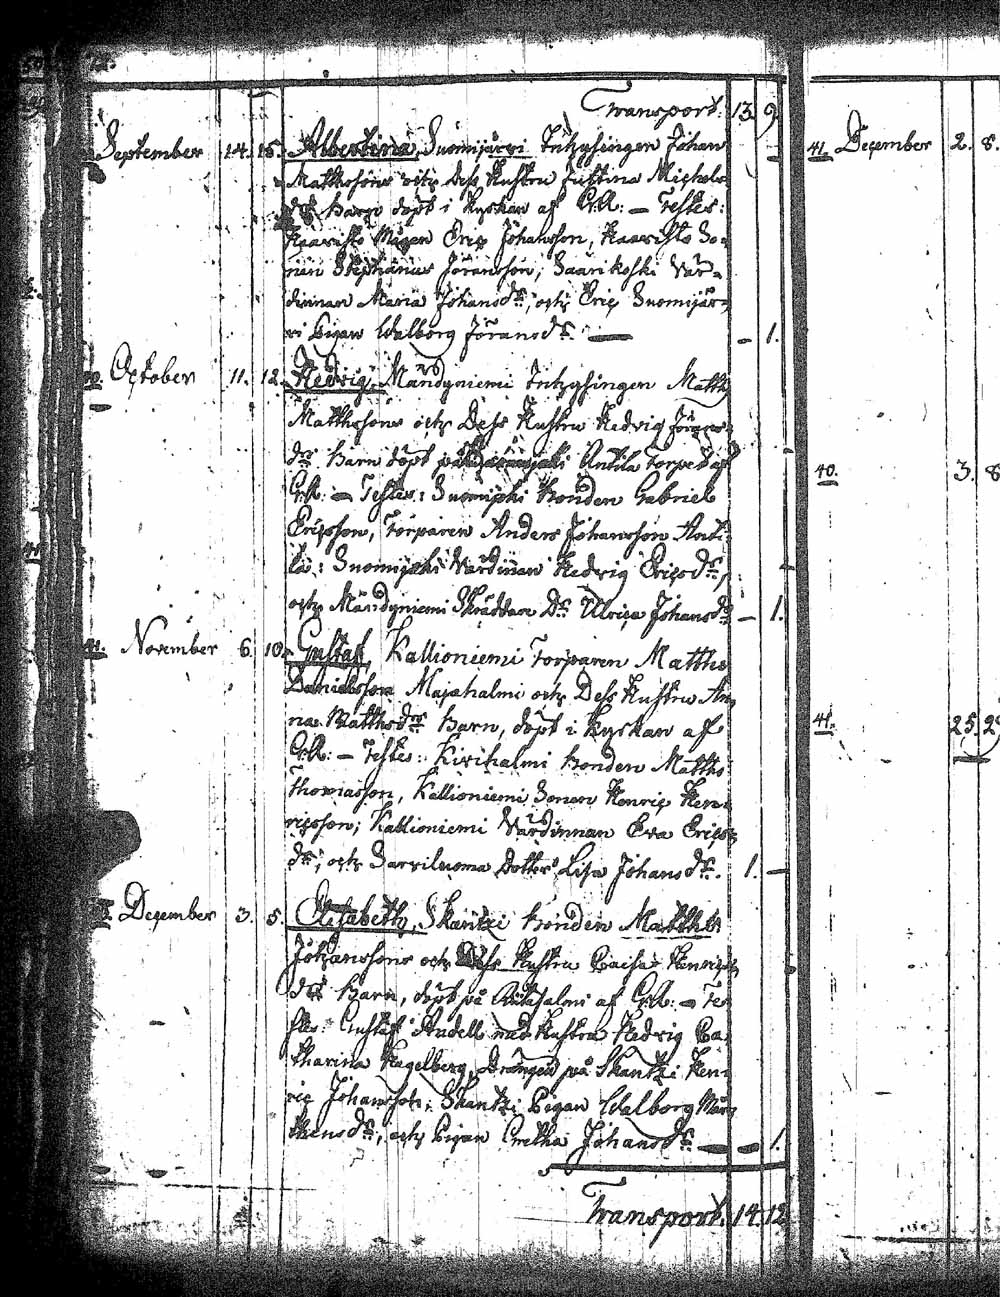 Transport. 13. 9.
September 14. 15. Albertina, Suomijärvi Inhysingen Johan
Matthssons och Dess Hustru Justina Michels
dr Barn döpt i Kyrkan af C.R: — Testes:
Kaaristo Mågen Eric Johansson, Kaaristo So-
nen Stephanus Jöransson, Saarikoski Vär-
dinnan Maria Johansdr, och Eric Suomijär-
vi Pigan Walborg Jöransdr — 1.
October 11. 12. Hedvig, Mändyniemi Inhysingen Matth
Matthssons och Dess Hustru Hedvig Jörans-
dr Barn döpt på Antila Torp af
C.R: — Testes: Suomijärvi Bonden Gabriel
Ericsson, Torparen Anders Johansson Anti-
la: Suomijärvi Värdinnan Hedvig Ericsdr,
och Mändyniemi Skräddare Dr Ulrica Johansdr — 1.
41. November 6. 10. Gustaf, Kallioniemi Torparen Matths
Danielsson Majahalmi och Dess Hustru An-
na Matthsdrs Barn, döpt i Kyrkan af
C.R: — Testes: Kivihalmi Bonden Matths
Thomasson, Kallioniemi Sonen Henric Hen-
ricsson; Kallioniemi Värdinnan Eva Erics
dr, och Sarviluoma Dotter Lisa Johansdr. 1. —
December 3. 5. Elisabeth, Skantzi Bonden Matths
Johanssons och Dess Hustru Caisa Henrics
drs Barn, döpt på af C.R: — Te-
stes: Gustaf med Hustru Hedvig Ca-
tharina Hagelberg, Drängen på Skantzi Hen-
ric Johansson; Skantzi Pigan Walborg Mår-
tensdr, och Pigan Gretha Johansdr — — 1.
Transport. 14. 12
41. December 2. 8.
40. 3. 8
41. 25. 2